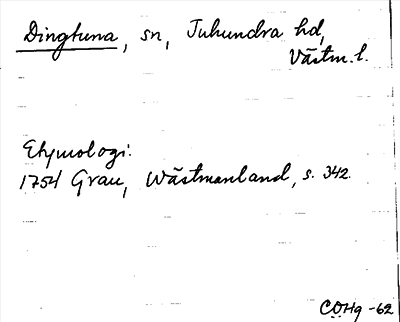 Dingtuna, sn, Tuhundra hd,
Västm. l.
Etymologi:
1754 Grau, Wästmanland, s. 342.
COHg -62